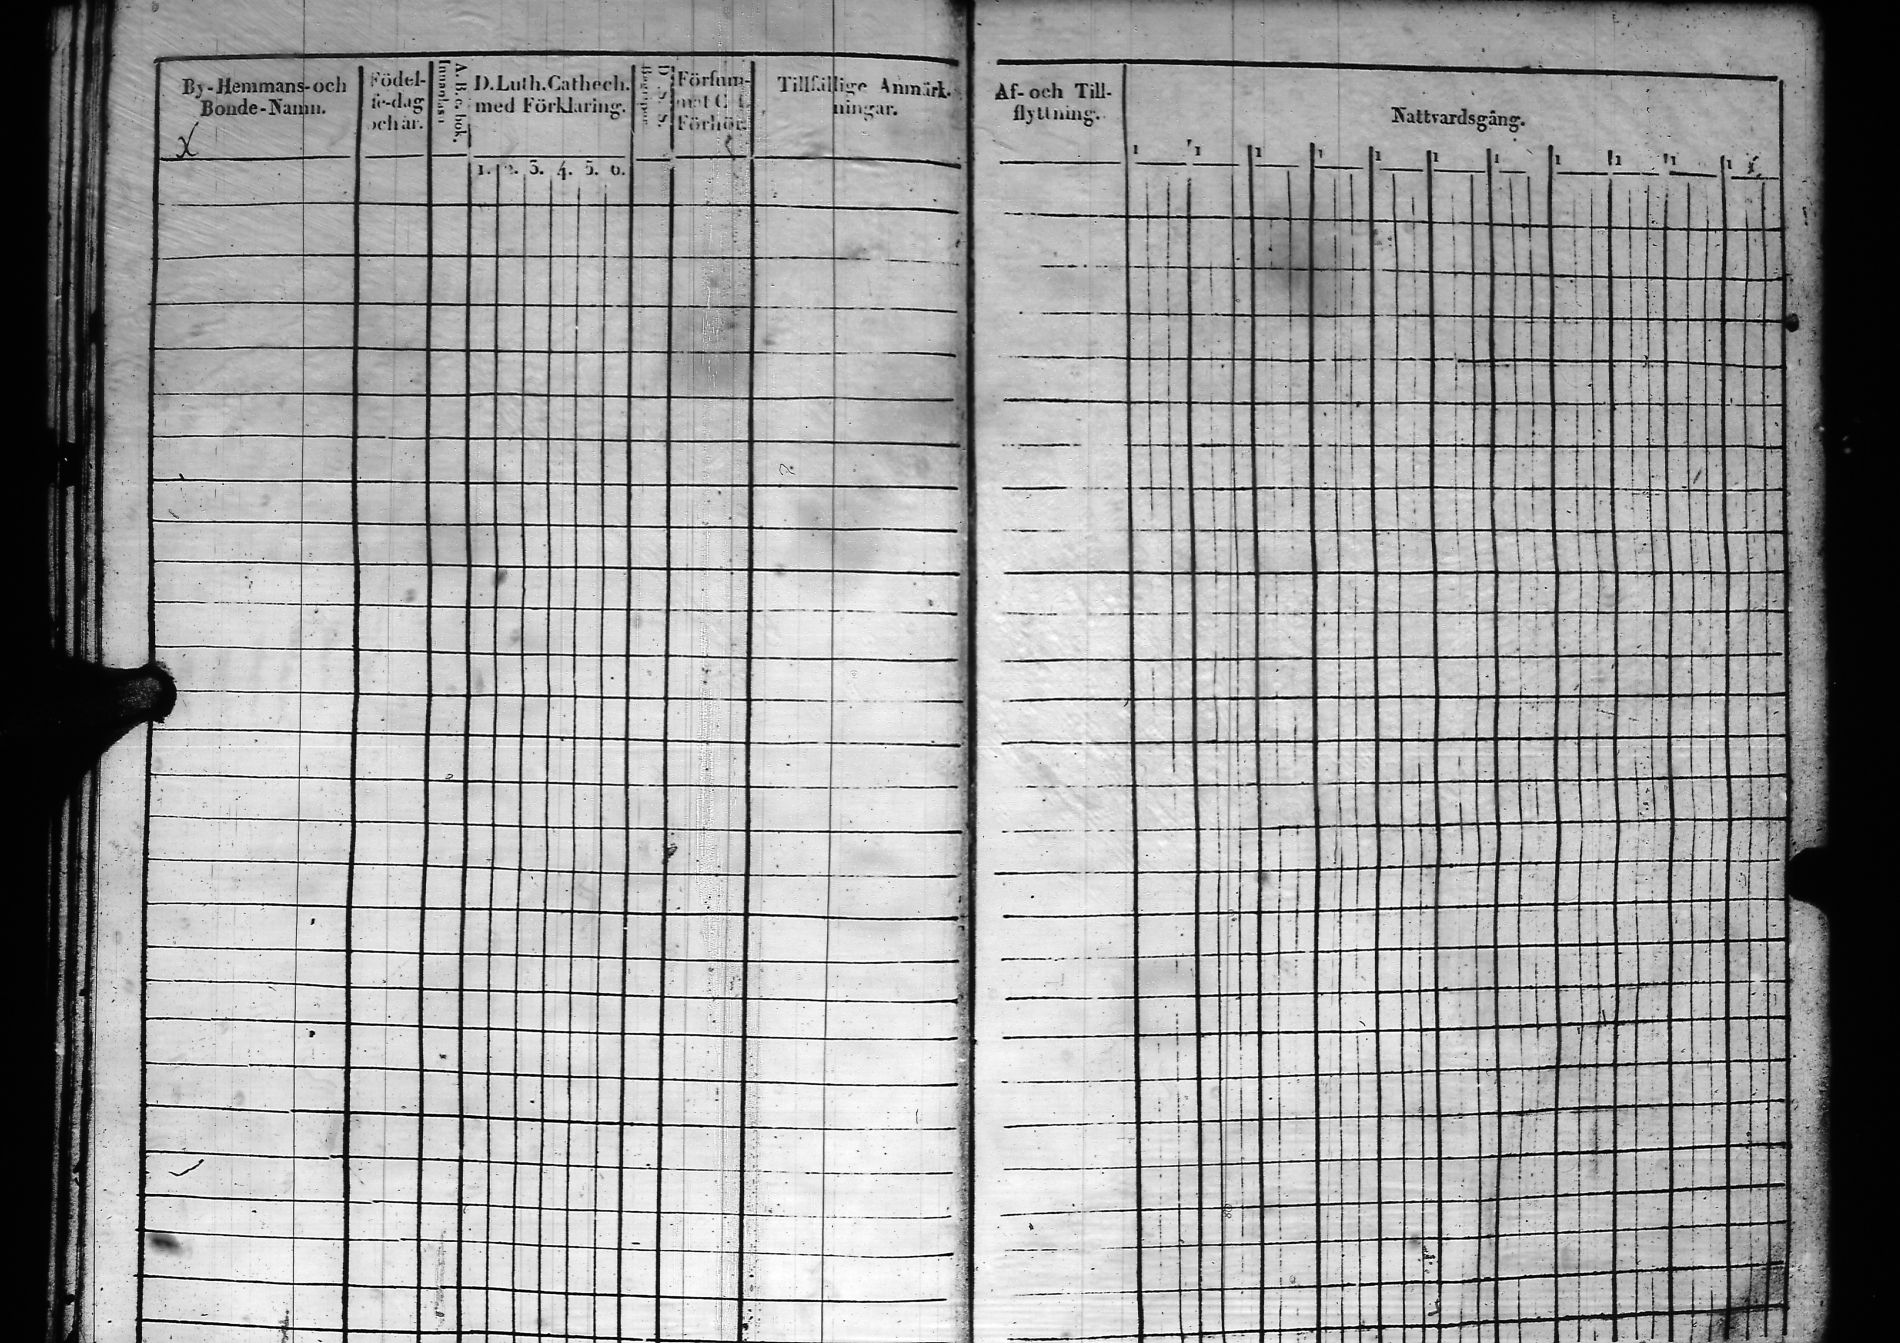 By-Hemmans-och
Bonde-Namn.
x
Födel-
se-dag
och år.
A. B. c. bok.
Innanläsn
D. Luth. Cathech.
med Förklaring.
1. 2. 3. 4. 5. 6.
D. S. S.
Försum-
mat C. L.
Förhör.
Tillfällige Anmärk-
ningar.
Af- och Till-
flyttning.
Nattvardsgång.
1 1 1 1 1 1 1 1 1 1 1